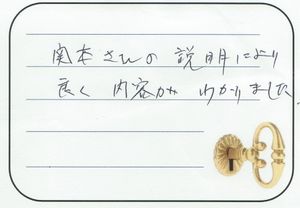 関本さんの説明により
良く内容がわかりました